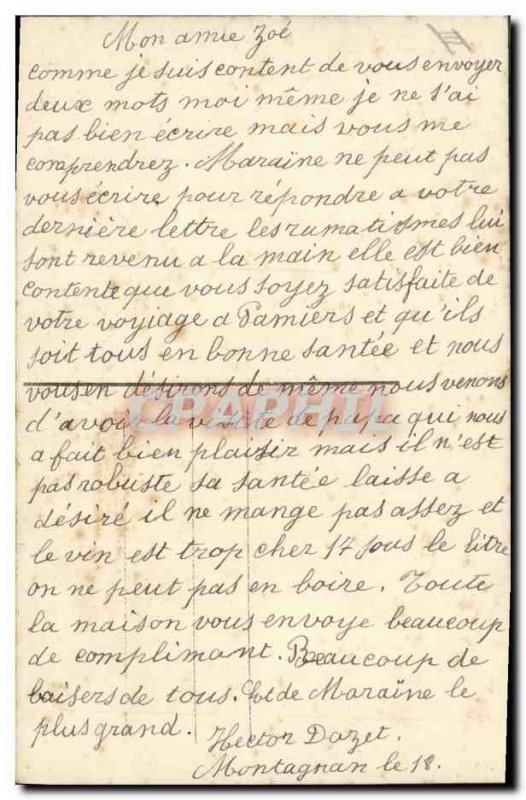 Mon amie Zoé
III
comme je suis content de vous envoyer
deux mots moi même je ne s'ai
pas bien écrire mais vous me
comprendrez. Maraïne ne peut pas
vous écrire pour répondre a votre
dernière lettre les rumatismes lui
sont revenu a la main elle est bien
contente que vous soyez satisfaite de
votre voyiage a Pamiers et qu'ils
soit tous en bonne santée et nous
vous en désirons de même nous venons
d'avoir la visite de papa qui nous
a fait bien plaisir mais il n'est
pas robuste sa santée laisse a
désiré il ne mange pas assez et
le vin est trop cher 17 sous le litre
on ne peut pas en boire. Toute
la maison vous envoye beaucoup
de complimant. Beaucoup de
baisers de tous. Et de Maraïne le
plus grand.
Hector Dazet.
Montagnan le 18.
CPAPHIL